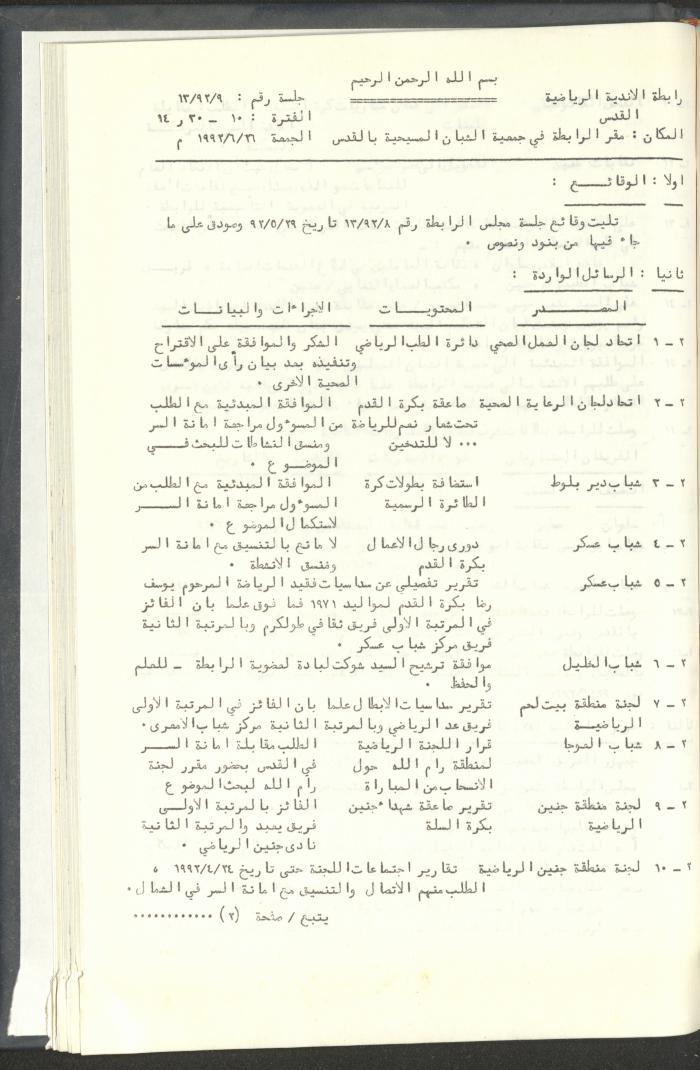 بسم الله الرحمن الرحيم
رابطة الاندية الرياضية جلسة رقم : ١٣/٩٢/٩
القدس الفترة : ١٠ – ٣٠ ر ١٤
المكان : مقر الرابطة في جمعية الشبان المسيحية بالقدس الجمعة ١٩٩٢/٦/٢٦ م
اولا : الوقائــع :
تليت وقائع جلسة مجلس الرابطة رقم ١٣/٩٢/٨ تاريخ ٩٢/٥/٢٩ وصودق على ما
جاء فيها من بنود ونصوص .
ثانيا : الرسائل الواردة :
المصــدر المحتويــات الاجراءات والبيانــات
٢ – ١ اتحاد لجان العمل الصحي دائرة الطب الرياضي الشكر والموافقة على الاقتراح
وتنفيذه بعد بيان رأى المؤسسات
الصحية الاخرى .
٢ – ٢ اتحاد لجان الرعاية الصحية صاعقة بكرة القدم الموافقة المبدئية مع الطلب
تحت شعار نعم للرياضة من المسوءول مراجعة امانة السر
... لا للتدخين ومنسق النشاطات للبحث فــي
الموضوع .
٢ – ٣ شباب دير بلوط استضافة بطولات كرة الموافقة المبدئية مع الطلب من
الطائرة الرسمية المسوءول مراجعة امانة الســر
لاستكمال الموضوع .
٢ – ٤ شباب عسكر دورى رجال الاعمال لا مانع بالتنسيق مع امانة السر
بكرة القدم ومنسق الانشطة .
٢ – ٥ شباب عسكر تقرير تفصيلي عن سداسيات فقيد الرياضة المرحوم يوسف
رضا بكرة القدم لمواليد ١٩٧١ فما فوق علما بان الفائز
في المرتبة الاولى فريق ثقافي طولكرم وبالمرتبة الثانية
فريق مركز شباب عسكر .
٢ – ٦ شباب الخليل موافقة ترشيح السيد شوكت لبادة لعضوية الرابطة – للعلم
والحفظ .
٢ – ٧ لجنة منطقة بيت لحم تقرير سداسيات الابطال علما بان الفائز في المرتبة الاولى
الرياضيــة فريق عد الرياضي وبالمرتبة الثانية مركز شباب الامعرى .
٢ – ٨ شباب العوجا قرار اللجنة الرياضية الطلب مقابلة امانة الســر
لمنطقة رام الله حول في القدس بحضور مقرر لجنة
الانسحاب من المباراة رام الله لبحث الموضوع
٢ – ٩ لجنة منطقة جنين تقرير صاعقة شهداء جنين الفائز بالمرتبة الاولــى
الرياضية بكرة السلة فريق يعبد والمرتبة الثانية
نادى جنين الرياضي .
٢ – ١٠ لجنة منطقة جنين الرياضية تقارير اجتماعات اللجنة حتى تاريخ ١٩٩٢/٤/٢٤ ،
الطلب منهم الاتصال والتنسيق مع امانة السر في الشمال .
يتبع / صفحة (٢) ............